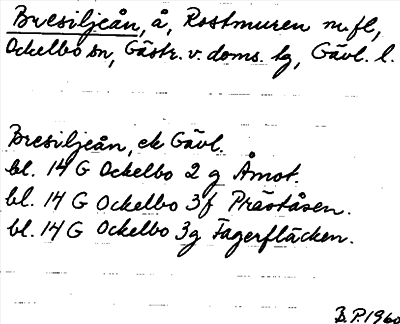 Bresiljeån, å, Rostmuren m.fl,
Ockelbo sn, Gästr. v. doms. hg, Gävl. l.
Bresiljeån, ek Gävl.
bl. 14 G Ockelbo 2 g Åmot.
bl. 14 G Ockelbo 3f Präståsen.
bl. 14 G Ockelbo 3g Fagerfläcken.
B.P. 1960